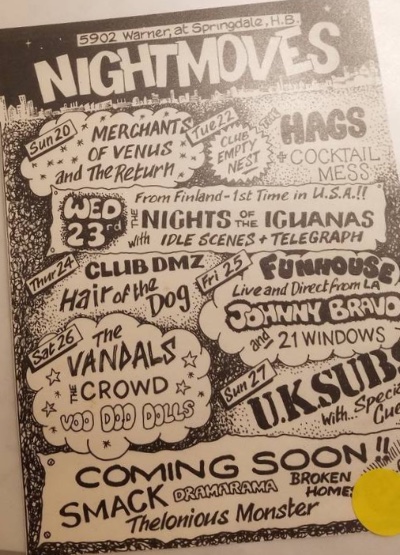 5902 Warner, at Springdale, H.B.
NIGHTMOVES
Sun 20
MERCHANTS
OF VENUS
and The Return
Tue 22
CLUB
EMPTY
NEST
HAGS
+ COCKTAIL
MESS
WED
23rd
From Finland - 1st Time in U.S.A.!!
THE NIGHTS OF THE IGUANAS
with IDLE SCENES + TELEGRAPH
Thur 24
CLUB DMZ
Hair of the
Dog
Fri 25
FUNHOUSE
Live and Direct from LA
JOHNNY BRAVO
and 21 WINDOWS
Sat 26
The
VANDALS
THE CROWD
VOO DOO DOLLS
Sun 27
U.K. SUBS
With...Special
COMING SOON!!
SMACK DRAMARAMA BROKEN
HOMES
Thelonious Monster